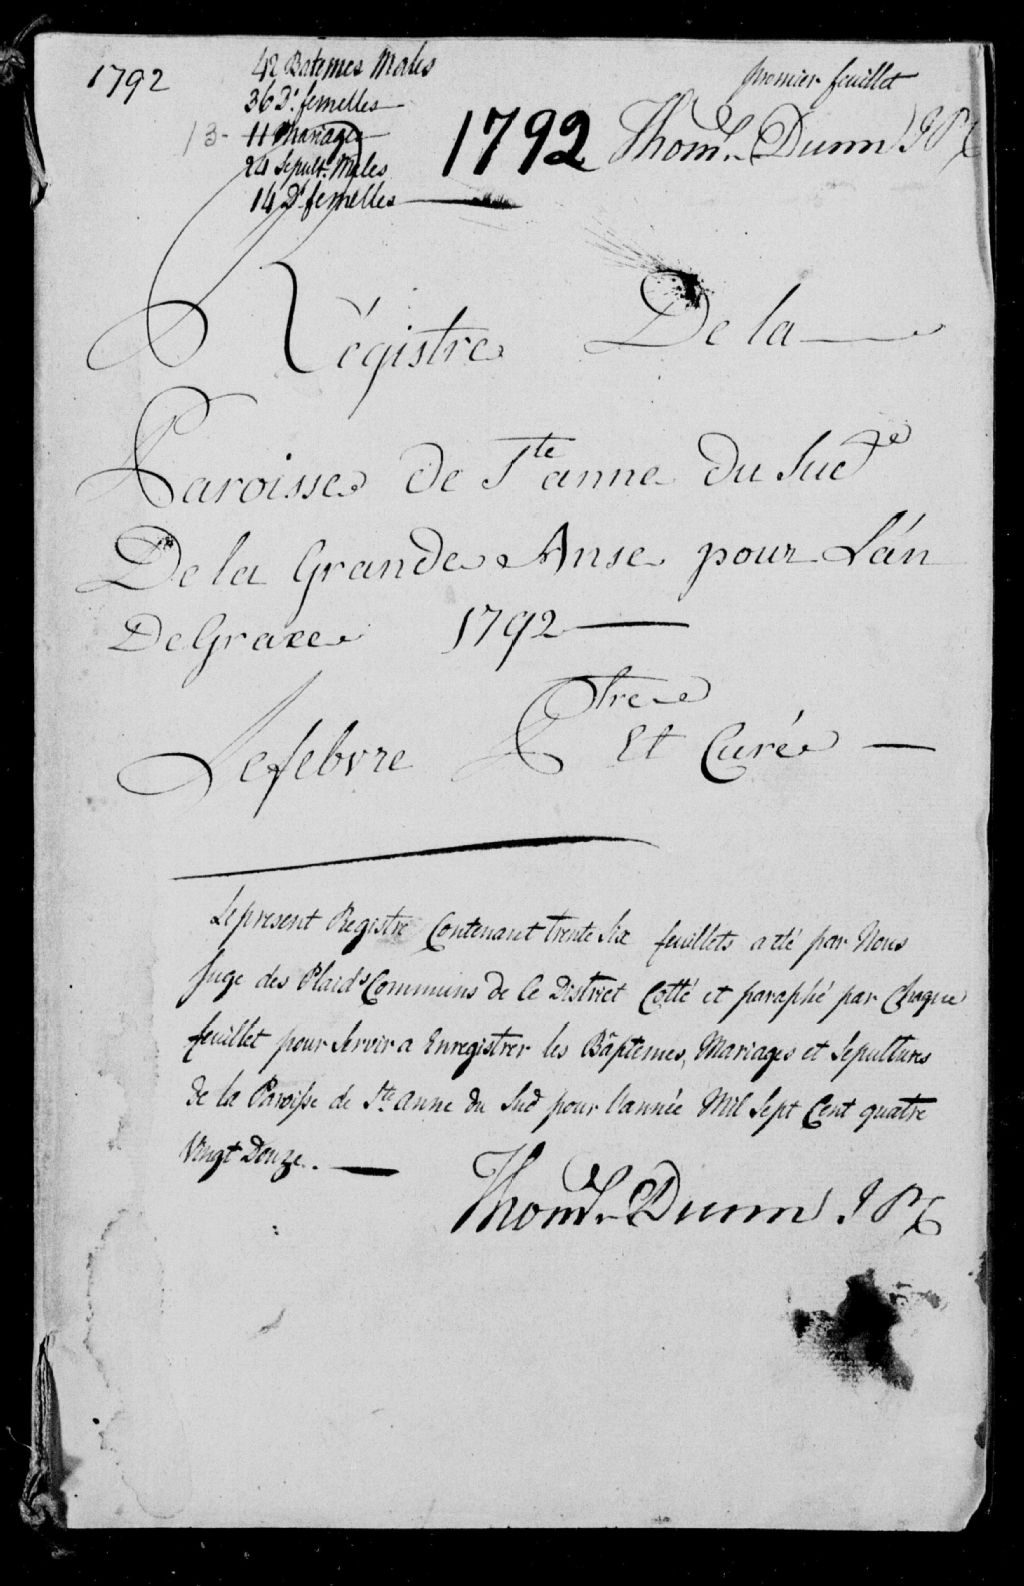 1792
42 Batemes Males
36 Do. femelles
13- 11 Mariages
24 Sepult. Males
14 Do. femelles
1792
premier feuillet
Thoms. Dunn JPC
Régistre De la
Paroisse de Ste anne du Sud
De la Grande Anse pour L'án
De Grace 1792
Lefebvre Ptre Et Curé
Le present Registre Contenant trente Six feuillets a eté par Nous
Juge des Plaids Communs de Ce District Cotté et paraphé par Chaque
feuillet pour Servir a Enregistrer les Bâptemes, Mariages et Sepultures
de la Paroisse de Ste anne du Sud pour l'année Mil Sept Cent quatre
Vingt Douze.
Thoms. Dunn JPC